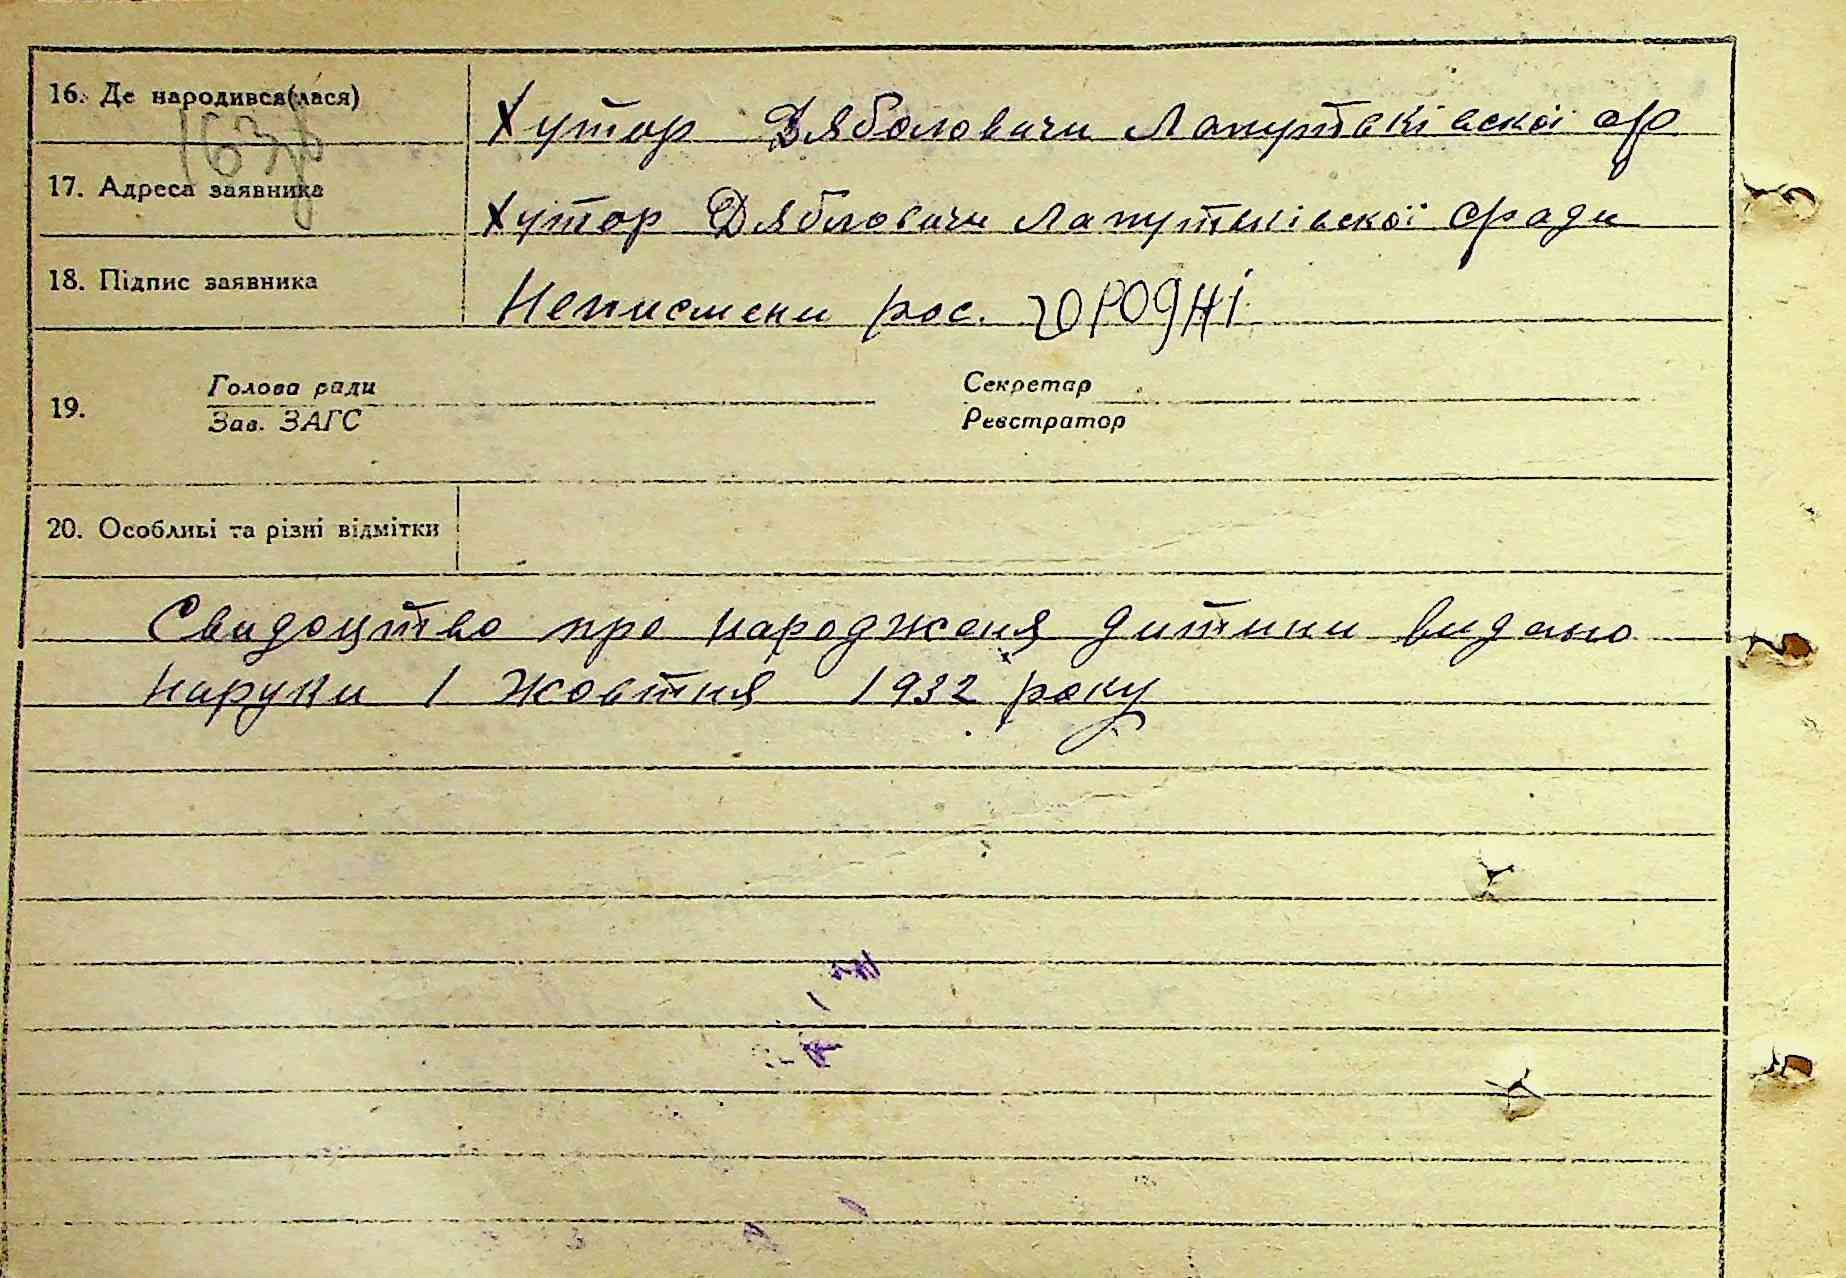 16. Де народився(лася) Хутор Дяболовичи Лапутьківскої с/р
163зв
17. Адреса заявника Хутор Дябловичи Лапутьківскої с/ради
18. Підпис заявника Неписмени рос.
19. Голова ради Секретар
Зав. ЗАГС Реєстратор
20. Особливі та різні відмітки
Свидоцтво про народженя дитини видано
наруки 1 жовтня 1932 року